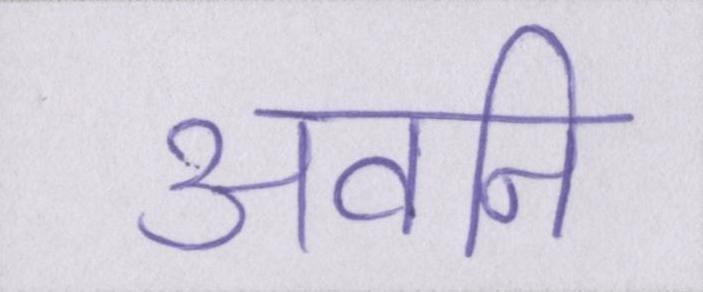 अवनि